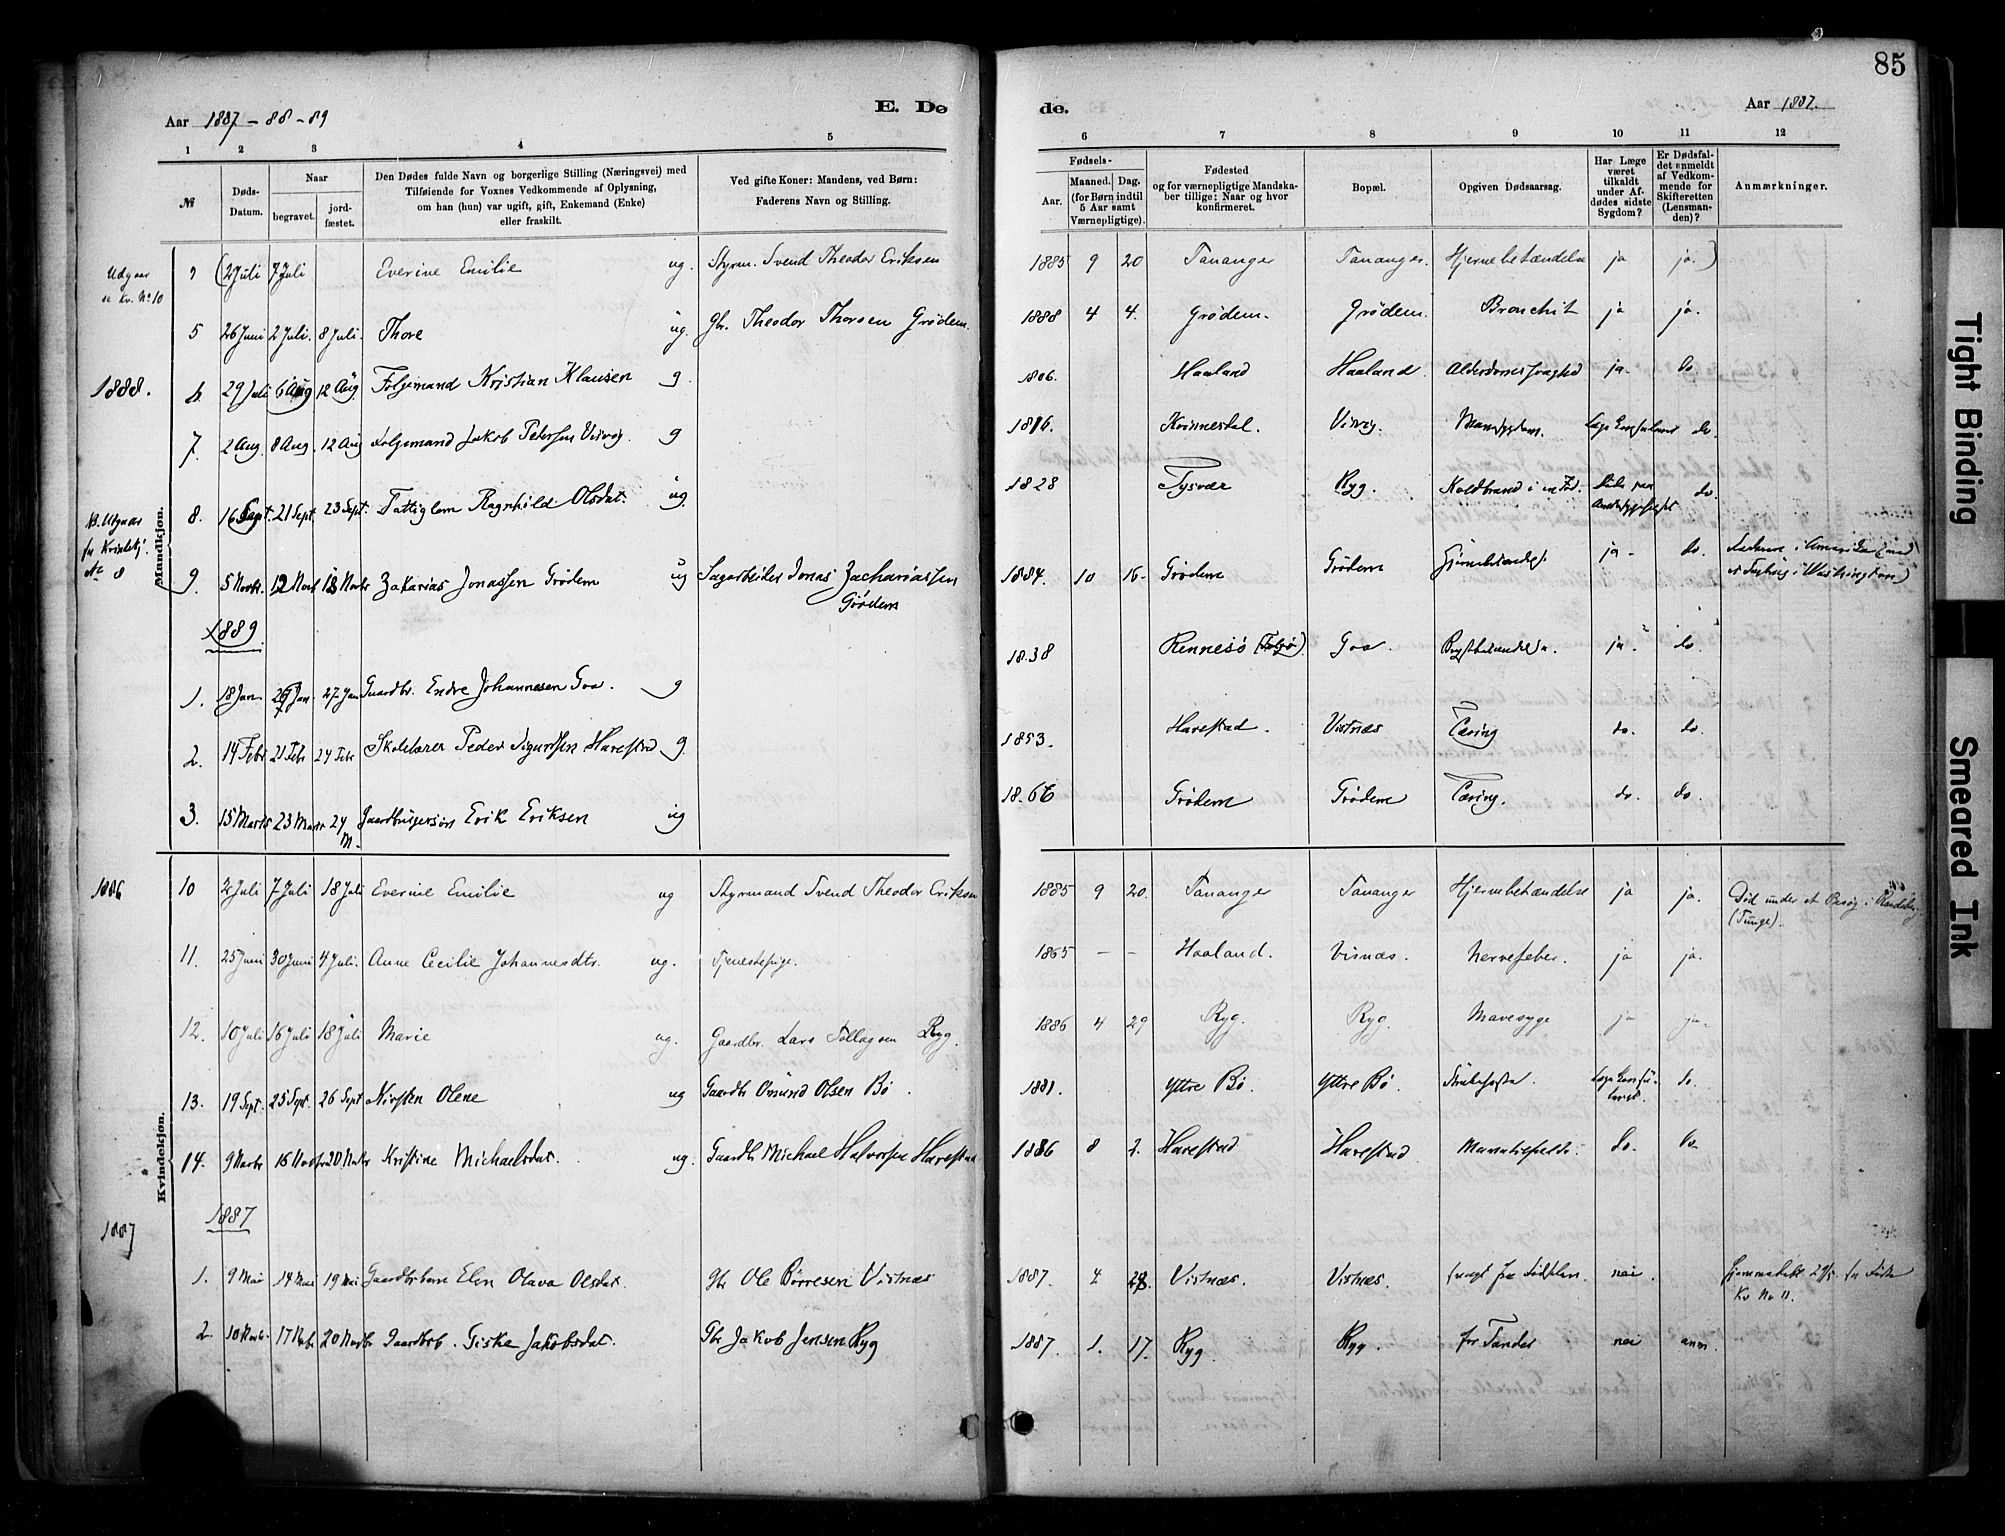 85
Aar 1887 - 88 - 89
E. Dø
de.
Aar 1887.
1 2 3 4 5
6 7 8 9 10 11 12
№
Døds-Datum.
Naar
begravet.
jordfæstet.
Den Dødes fulde Navn og borgerlige Stilling (Næringsvei) med
Tilføiende for Voxnes Vedkommende af Oplysning,
om han (hun) var ugift, gift, Enkemand (Enke)
eller fraskilt.
Ved gifte Koner: Mandens, ved Børn:
Faderens Navn og Stilling.
Fødsels-
Aar.
Maaned. Dag.
(for Børn indtil
5 Aar samt
Værnepligtige).
Fødested
og for værnepligtige Mandska-
ber tillige: Naar og hvor
konfirmeret.
Bopæl.
Opgiven Dødsaarsag.
Har Læge
været
tilkaldt
under Af-
dødes sidste
Sygdom?
Er Dødsfal-
det anmeldt
af Vedkom-
mende for
Skifteretten
(Lensman-
den)?
Anmærkninger.
Udgaar
se Kv. No 10
(2 Juli 7 Juli Everine Emilie ug. Styrm. Svend Theodor Eriksen 1885 9 20 Tananger Tananger. Hjernebetændelse ja ja.)
5 26 Juni 2 Juli. 8 Juli. Thore ug. Gbr. Theodor Thorsen Grødem. 1888 4 4. Grødem. Grødem. Bronchit ja ja.
1888.
6. 29 Juli 6 Aug 12 Aug Følgemand Kristian Klausen g. 1806. Haaland Haaland. Alderdomssvaghed ja. do.
7. 2 Aug. 8 Aug. 12 Aug Folgemand Jakob Petersen g 1816. Kvinnesdal. do.
8. 16 Sept. 21 Sept. 23 Sept. Fattiglem Ragnhild Olsdat. ug. 1828 Tysvær Ryg. Koldbrand i en Fod. do.
№ 8
Mandkjøn.
9. 5 Novbr. 12 Novb 18 Novbr Zakarias Jonassen Grødem ug Sagarbeider Jonas Zachariassen
Grødem
1884. 10 16. Grødem Grødem ja. do. Faderen i Amerika
1889
1. 18 Jan. 26 Jan. 27 Jan Gaardbr. Endre Johannesen Goa. g 1838 Rennesø Goa. ja. do.
2. 14 Febr 21 Febr 24 Febr Skolelærer Peder Sigurdsen Harestad g. 1853. Harestad. Vistnæs Tæring do. do.
3. 15 Marts 23 Marts 24
M.
Gaardbrugersøn Erik Eriksen ug 1866 Grødem Grødem Tæring. do. do.
1886
10 2 Juli 7 Juli 18 Juli Everine Emilie ug Styrmand Svend Theodor Eriksen 1885 9 20. Tananger Tananger Hjernebetændelse ja ja. Død under et Besøg i Randeberg
(Tunge).
11. 25 Juni 30 Juni 4 Juli. Anne Cecilie Johannesdtr. ug. Tjenestepige. 1865 — — Haaland. Visnæs. Nervefeber. ja ja.
12. 10 Juli 16 Juli 18 Juli Marie ug. Gaardbr. Lars Tollagsen Ryg. 1886 4 29 Ryg. Ryg. Mavesyge ja ja.
13. 19 Sept. 25 Sept. 26 Sept Kirsten Olene ug Gaardbr Omund Olsen Bø. 1881. Yttre Bø. Yttre Bø. Strubehoste. do.
Kvindekjøn.
14. 9 Novbr 16 Novbr 20 Novbr Kristine Michaelsdat. ug. Gaardbr Michael Halvorsen Harestad 1886 8 2. Harestad Harestad do. do.
1887
1887
1. 9 Mai 14 Mai 19 Mai Gaardbrbarn Elen Olava Olsdat. Gbr Ole Børresen Vistnæs 1887. 4. 28. Vistnæs. Vistnæs. svagt fra Fødselen. nei. Hjemmedøbt
Kv No 11.
2. 10 Novbr. 17 Novbr 20 Novbr Gaardbrb. Giske Jakobsdat. Gbr Jakob Jensen Ryg 1887. 1. 17. Ryg. Ryg. for Tænder nei anm.
Tight Binding
Smeared Ink